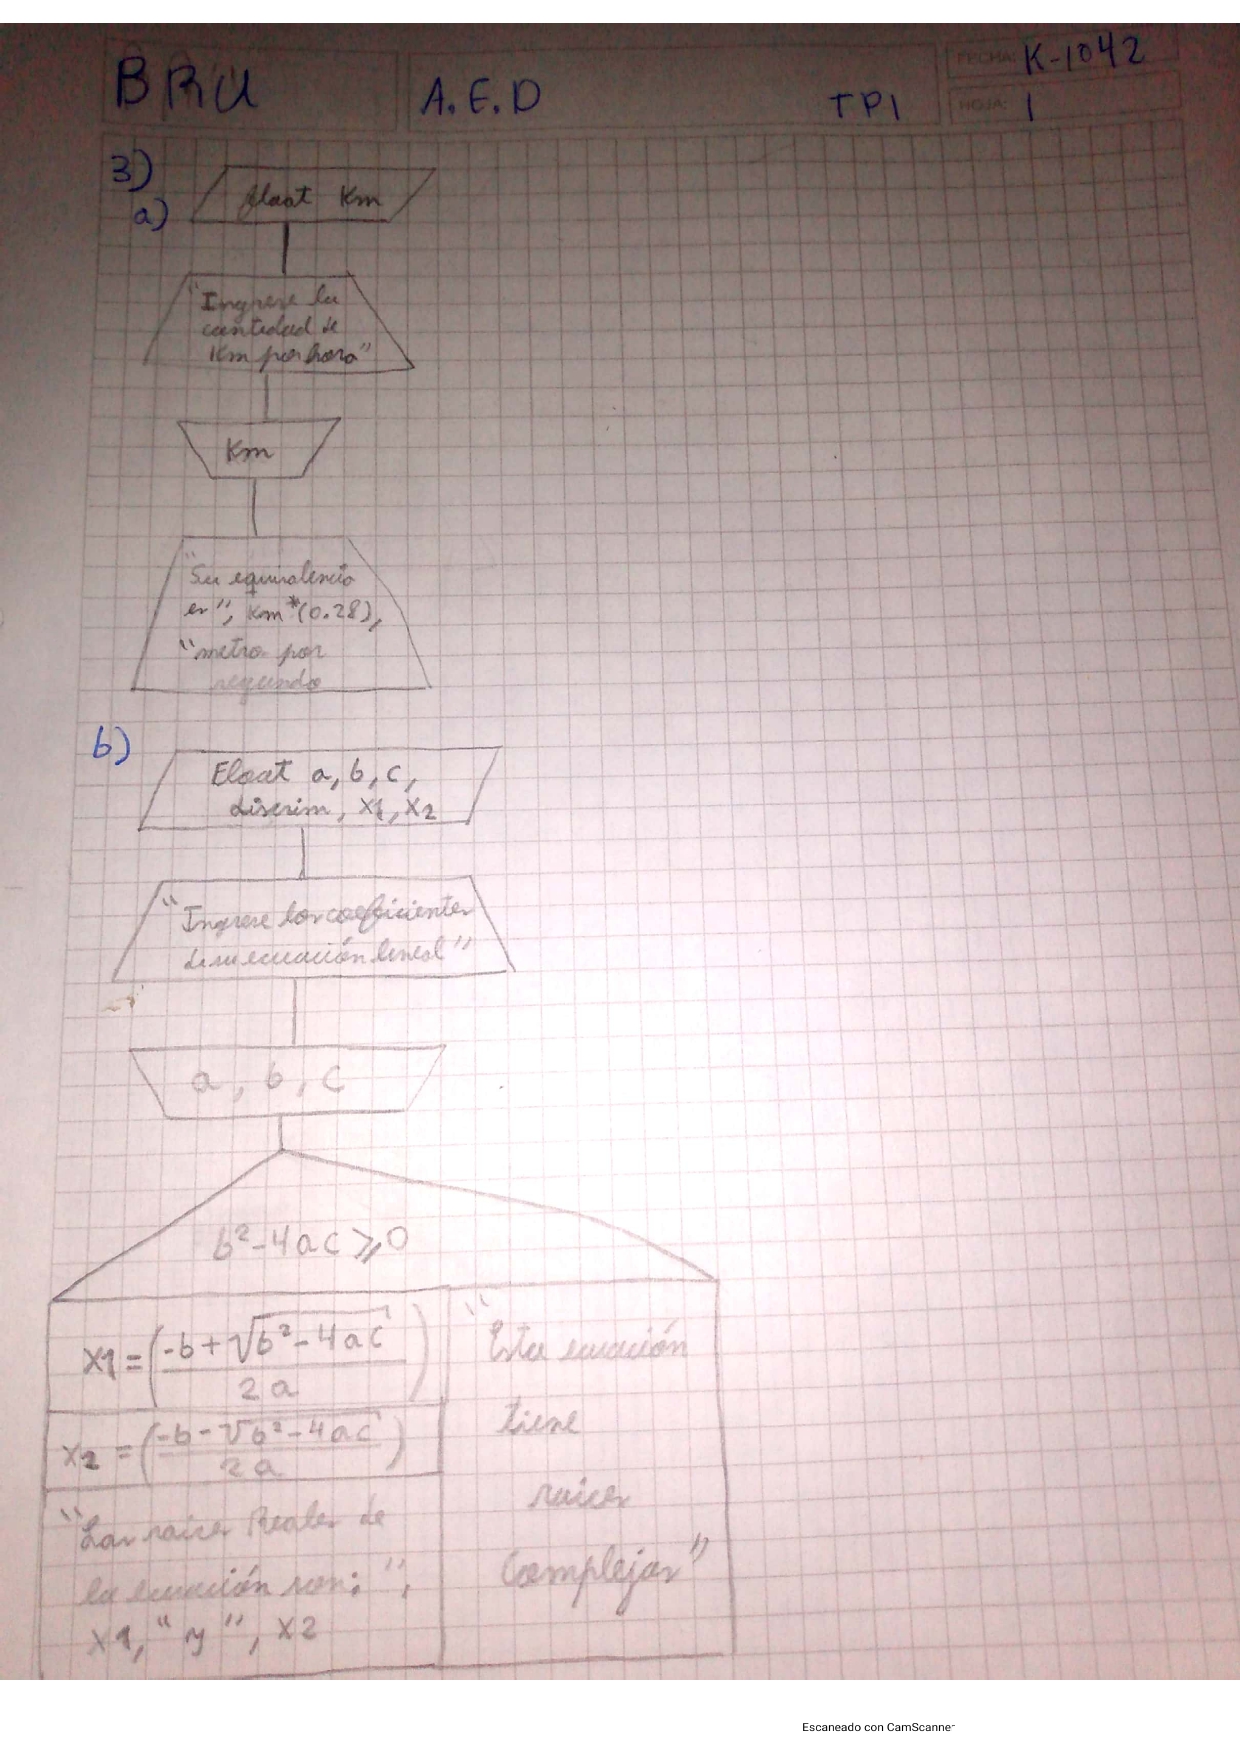 BRU
A.E.D
TP1
FECHA: K-1042
HOJA: 1
3)
a)
float Km
"Ingrese la
cantidad de
Km por hora"
Km
"Su equivalencia
es", Km*(0.28),
"metro por
segundo
b)
Float a, b, c,
discrim, x1, x2
"Ingrese los coeficientes
de su ecuación lineal"
a, b, c
b²-4ac ≥ 0
x1 = (-b+√b²-4ac / 2a)
x2 = (-b-√b²-4ac / 2a)
"Las raices Reales de
la ecuación son: ",
x1, "y", x2
"Esta ecuación
tiene
raices
Complejas"
Escaneado con CamScanner